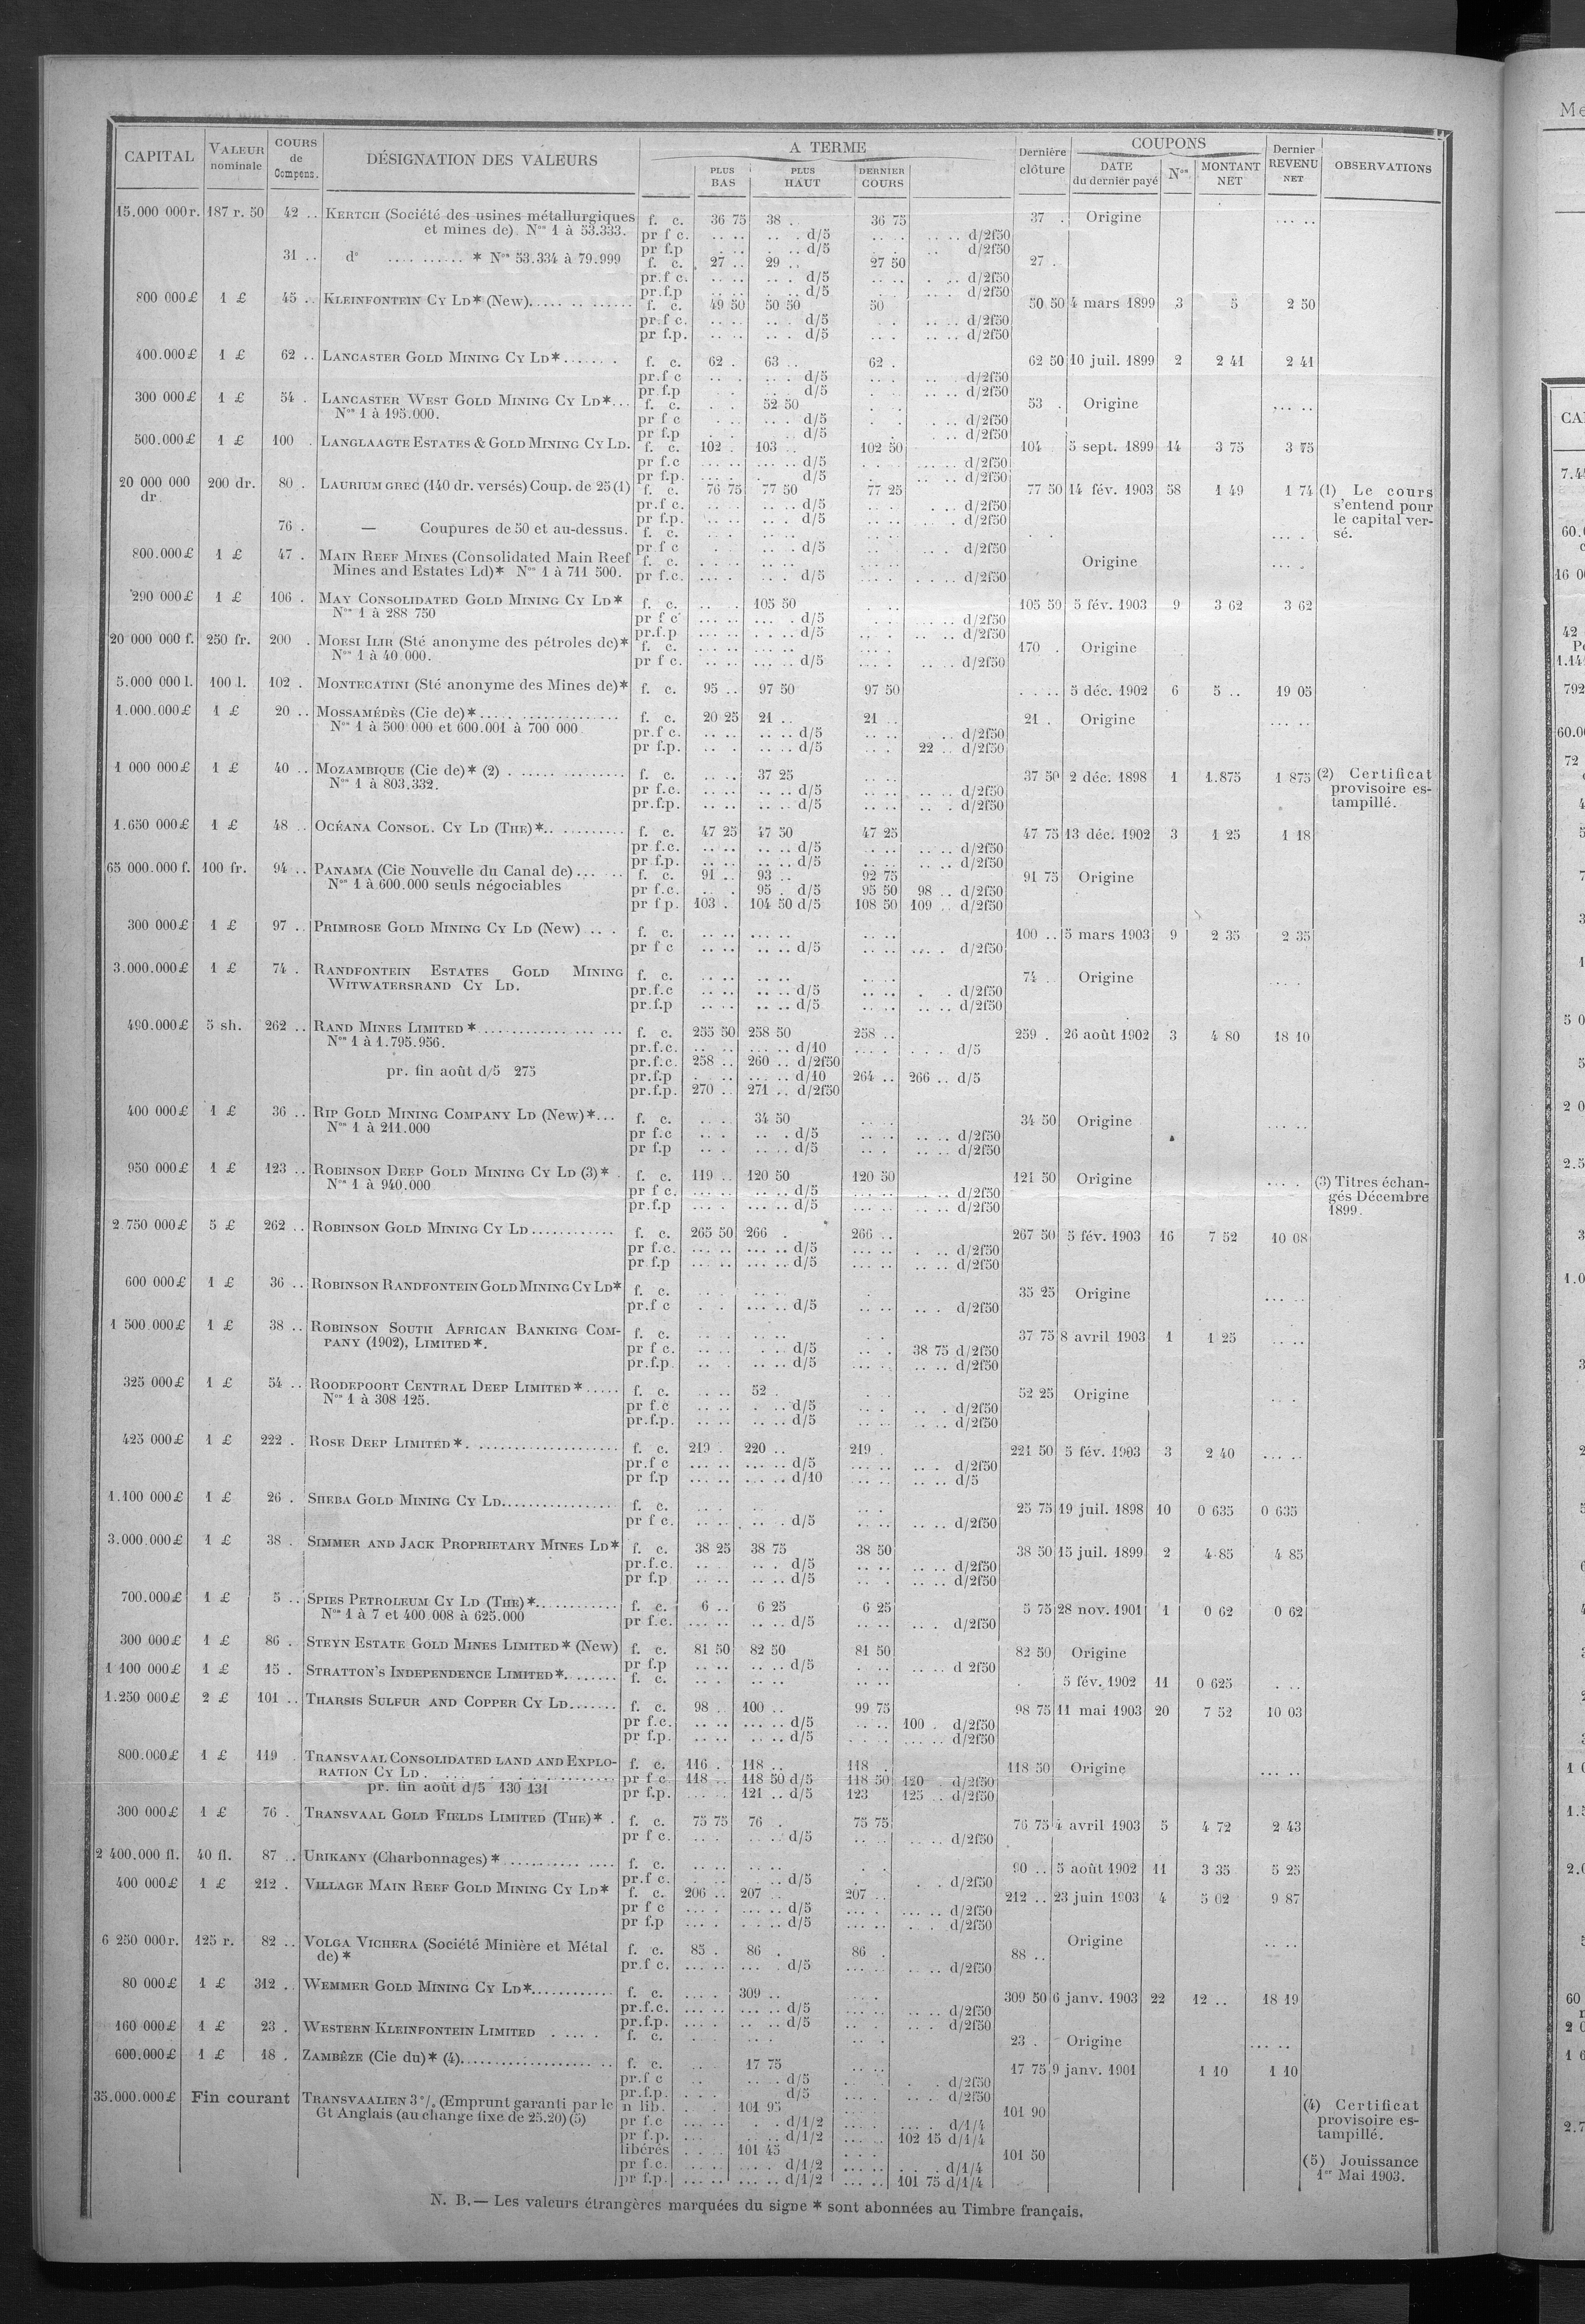 CAPITAL VALEUR nominale COURS de Compens. DÉSIGNATION DES VALEURS A TERME PLUS BAS PLUS HAUT DERNIER COURS Dernière clôture COUPONS DATE du dernier payé Nos MONTANT NET Dernier REVENU NET OBSERVATIONS
15.000 000 r. 187 r. 50 42 .. KERTCH (Société des usines métallurgiques f. c. 36 75 38 . 36 75 37 . Origine ... ..
et mines de). Nos 1 à 53.333. pr f c. .. .. .. . d/5 .. . .. .. d/2f50
pr f.p . .. .. . d/5 .. . .. d/2f50
31 .. do .... .......... * Nos 53.334 à 79.999 f. c. 27 .. 29 .. 27 50 27 .
pr.f c. .. .. .. . d/5 .. .. . .. d/2f50
pr.f.p .. .. .. .. d/5 .. . .. d/2f50
800 000 £ 1 £ 45 .. KLEINFONTEIN CY LD* (New)..... .. ...... f. c. 49 50 50 50 50 50 50 4 mars 1899 3 5 2 50
pr.f c. .. .. .. . d/5 . . .. .. d/2f50
pr f.p. .. .. .. . d/5 . . .. .. d/2f50
400.000 £ 1 £ 62 .. LANCASTER GOLD MINING CY LD*...... . f. c. 62 . 63 .. 62 . 62 50 10 juil. 1899 2 2 41 2 41
pr.f c .. . .. . d/5 .. . .. d/2f50
pr f.p .. d/5 . . .. .. d/2f50
300 000 £ 1 £ 54 . LANCASTER WEST GOLD MINING CY LD*... f. c. . . 52 50 . . 53 . Origine ... ..
Nos 1 à 195.000. pr f c . .. .. .. d/5 . . . .. d/2f50
pr f.p . . .. .. d/5 . . .. d/2f50
500.000 £ 1 £ 100 . LANGLAAGTE ESTATES & GOLD MINING CY LD. f. c. 102 . 103 .. 102 50 104 . 5 sept. 1899 14 3 75 3 75
pr f.c ... .. ... .. d/5 . . ... .. d/2f50
pr f.p. ... . .. d/5 .. . .. .. d/2f50
20 000 000 200 dr. 80 . LAURIUM GREC (140 dr. versés) Coup. de 25 (1) f. c. 76 75 77 50 77 25 77 50 14 fév. 1903 58 1 49 1 74 (1) Le cours
dr. pr.f c. .. .. .. . d/5 .. .. . .. d/2f50 s'entend pour
pr f.p. .. .. .. . d/5 .. .. .. .. d/2f50 le capital ver-
76 . — Coupures de 50 et au-dessus. f. c. . .. .. .. . . ... . sé.
pr.f c . .. . .. d/5 .. . .. . d/2f50
800.000 £ 1 £ 47 . MAIN REEF MINES (Consolidated Main Reef f. c. . .. .. .. Origine ... .
Mines and Estates Ld)* Nos 1 à 711 500. pr f.c. ... . .. . d/5 .. . . .. d/2f50
290 000 £ 1 £ 106 . MAY CONSOLIDATED GOLD MINING CY LD* f. c. .. . 105 50 . .. 105 50 5 fév. 1903 9 3 62 3 62
Nos 1 à 288 750 pr f c ... .. ... . d/5 .. . .. . d/2f50
pr.f.p ... .. . .. d/5 .. . .. .. d/2f50
20 000 000 f. 250 fr. 200 . MOESI ILIR (Sté anonyme des pétroles de)* f. c. ... .. ... .. 170 . Origine
Nos 1 à 40.000. pr f c. .. .. ... .. d/5 ... . .. .. d/2f50
5.000 000 l. 100 l. 102 . MONTECATINI (Sté anonyme des Mines de)* f. c. 95 .. 97 50 97 50 . . .. 5 déc. 1902 6 5 .. 19 05
1.000.000 £ 1 £ 20 .. MOSSAMÉDÈS (Cie de)*..... .................. f. c. 20 25 21 .. 21 .. 21 . Origine ... ..
Nos 1 à 500 000 et 600.001 à 700 000 pr.f c. .. .. .. .. d/5 .. .. .. d/2f50
pr f.p. .. . .. .. d/5 .. . 22 .. d/2f50
1 000 000 £ 1 £ 40 .. MOZAMBIQUE (Cie de)* (2) . ............... f. c. .. .. 37 25 .. .. 37 50 2 déc. 1898 1 1.875 1 875 (2) Certificat
Nos 1 à 803.332. pr f.c. .. .. .. .. d/5 .. .. .. .. d/2f50 provisoire es-
pr.f.p. .. .. .. .. d/5 .. .. .. . d/2f50 tampillé.
1.650 000 £ 1 £ 48 .. OCÉANA CONSOL. CY LD (THE)*.. .......... f. c. 47 25 47 50 47 25 47 75 13 déc. 1902 3 1 25 1 18
pr f.c. .. .. .. .. d/5 . .. .. .. d/2f50
pr f.p. .. .. .. .. d/5 .. .. .. .. d/2f50
65 000.000 f. 100 fr. 94 .. PANAMA (Cie Nouvelle du Canal de)... .. . f. c. 91 .. 93 .. 92 75 91 75 Origine
Nos 1 à 600.000 seuls négociables pr f.c. .. . 95 . d/5 95 50 98 .. d/2f50
pr f p. 103 . 104 50 d/5 108 50 109 .. d/2f50
300 000 £ 1 £ 97 .. PRIMROSE GOLD MINING CY LD (New) .. . f. c. .. .. ... .. .. .. 100 .. 5 mars 1903 9 2 35 2 35
pr f c .. .. .. .. d/5 .. .. ... . d/2f50
3.000.000 £ 1 £ 74 . RANDFONTEIN ESTATES GOLD MINING f. c. .. .. .. .. 74 . Origine ... .
WITWATERSRAND CY LD. pr.f.c .. .. .. .. d/5 .. .. . . d/2f50
pr.f.p .. .. .. .. d/5 .. .. .. .. d/2f50
490.000 £ 5 sh. 262 .. RAND MINES LIMITED*................. ... ... f. c. 255 50 258 50 258 .. 259 . 26 août 1902 3 4 80 18 10
Nos 1 à 1.795.956. pr.f.c. .. .. ... .. d/10 ... . . . . d/5
pr.f.c. 258 .. 260 .. d/2f50
pr. fin août d/5 275 pr.f.p . .. ... .. d/10 264 .. 266 .. d/5
pr.f.p. 270 .. 271 .. d/2f50
400 000 £ 1 £ 36 .. RIP GOLD MINING COMPANY LD (New)*... f. c. .. . 34 50 .. . 34 50 Origine ... ..
Nos 1 à 211.000 pr f.c .. . .. . d/5 .. .. .. .. d/2f50
pr f.p .. . .. .. d/5 .. . .. .. d/2f50
950 000 £ 1 £ 123 .. ROBINSON DEEP GOLD MINING CY LD (3)* . f. c. 119 .. 120 50 120 50 121 50 Origine ... . (3) Titres échan-
Nos 1 à 940.000 pr f c. ... .. .. .. d/5 ... .. .. .. d/2f50 gés Décembre
pr.f.p ... . ... .. d/5 ... .. .. .. d/2f50 1899.
2.750 000 £ 5 £ 262 .. ROBINSON GOLD MINING CY LD............ f. c. 265 50 266 . 266 .. 267 50 5 fév. 1903 16 7 52 10 08
pr f.c. ... .. ... .. d/5 ... .. . .. d/2f50
pr f.p ... .. ... .. d/5 ... .. .. .. d/2f50
600 000 £ 1 £ 36 .. ROBINSON RANDFONTEIN GOLD MINING CY LD* f. c. .. . .. .. 35 25 Origine ... ..
pr.f c . . ... .. d/5 .. .. .. . d/2f50
1 500.000 £ 1 £ 38 .. ROBINSON SOUTH AFRICAN BANKING COM- f. c. .. . .. .. . . 37 75 8 avril 1903 1 1 25 .. ..
PANY (1902), LIMITED*. pr f c. .. .. . .. d/5 .. . 38 75 d/2f50
pr.f.p. .. . .. .. d/5 ... . .. .. d/2f50
325 000 £ 1 £ 54 .. ROODEPOORT CENTRAL DEEP LIMITED*..... f. c. .. .. 52 . . . 52 25 Origine . .
Nos 1 à 308 125. pr f.c .. .. . .. d/5 .. . .. . d/2f50
pr.f.p. .. .. .. .. d/5 .. .. .. .. d/2f50
425 000 £ 1 £ 222 . ROSE DEEP LIMITED*...................... f. c. 219 . 220 .. 219 . 221 50 5 fév. 1903 3 2 40 ... ..
pr.f c ... .. ... .. d/5 ... .. .. . d/2f50
pr f.p ... .. .. .. d/10 ... .. .. .. d/5
1.100 000 £ 1 £ 26 . SHEBA GOLD MINING CY LD................ f. c. .. . .. .. . 25 75 19 juil. 1898 10 0 635 0 635
pr f c. .. .. .. . d/5 .. .. .. .. d/2f50
3.000.000 £ 1 £ 38 . SIMMER AND JACK PROPRIETARY MINES LD* f. c. 38 25 38 75 38 50 38 50 15 juil. 1899 2 4 85 4 85
pr.f.c. .. . .. . d/5 .. .. .. .. d/2f50
pr f.p .. .. .. .. d/5 .. .. .. .. d/2f50
700.000 £ 1 £ 5 .. SPIES PETROLEUM CY LD (THE)*........... f. c. 6 .. 6 25 6 25 5 75 28 nov. 1901 1 0 62 0 62
Nos 1 à 7 et 400.008 à 625.000 pr f.c. ... .. .. .. d/5 .. .. .. . d/2f50
300 000 £ 1 £ 86 . STEYN ESTATE GOLD MINES LIMITED* (New) f. c. 81 50 82 50 81 50 82 50 Origine
pr f.p .. .. .. .. d/5 . .. .. .. d 2f50
1 100 000 £ 1 £ 15 . STRATTON'S INDEPENDENCE LIMITED*....... f. c. .. .. .. .. .. .. . 5 fév. 1902 11 0 625 . ..
1.250 000 £ 2 £ 101 .. THARSIS SULFUR AND COPPER CY LD....... f. c. 98 .. 100 .. 99 75 98 75 11 mai 1903 20 7 52 10 03
pr f.c. .. .. ... .. d/5 .. .. 100 . d/2f50
pr f.p. .. .. ... .. d/5 . .. ... .. d/2f50
800.000 £ 1 £ 119 . TRANSVAAL CONSOLIDATED LAND AND EXPLO- f. c. 116 . 118 .. 118 . 118 50 Origine ... ..
RATION CY LD . ... . ............... pr f c 118 .. 118 50 d/5 118 50 120 . d/2f50
pr. fin août d/5 130 131 pr f.p. ... .. 121 .. d/5 123 125 .. d/2f50
300 000 £ 1 £ 76 . TRANSVAAL GOLD FIELDS LIMITED (THE)* . f. c. 75 75 76 . 75 75 76 75 4 avril 1903 5 4 72 2 43
pr f c. .. . .. .. d/5 .. .. .. .. d/2f50
2 400.000 fl. 40 fl. 87 .. URIKANY (Charbonnages)*........... .... f. c. .. .. .. .. . 90 .. 5 août 1902 11 3 35 5 25
pr.f c. . .. .. d/5 . . . d/2f50
400 000 £ 1 £ 212 . VILLAGE MAIN REEF GOLD MINING CY LD* f. c. 206 .. 207 .. 207 .. 212 .. 23 juin 1903 4 5 02 9 87
pr f c ... . ... .. d/5 ... . ... .. d/2f50
pr f.p ... .. . .. d/5 ... .. .. . d/2f50
6 250 000 r. 125 r. 82 .. VOLGA VICHERA (Société Minière et Métal f. c. 85 . 86 . 86 . 88 .. Origine .. ..
de)* pr.f c. ... .. ... . d/5 ... .. .. .. d/2f50
80 000 £ 1 £ 312 .. WEMMER GOLD MINING CY LD*............ f. c. ... . 309 .. ... . 309 50 6 janv. 1903 22 12 .. 18 19
pr.f.c. ... .. ... .. d/5 ... .. .. .. d/2f50
pr.f.p. ... .. .. .. d/5 ... .. .. . d/2f50
160 000 £ 1 £ 23 . WESTERN KLEINFONTEIN LIMITED . .... . f. c. .. . .. . .. . 23 . Origine ... ..
600.000 £ 1 £ 18 . ZAMBÈZE (Cie du)* (4)................. .. f. c. .. 17 75 .. .. 17 75 9 janv. 1901 1 10 1 10
pr.f c .. .. .. d/5 .. .. . .. d/2f50
pr.f.p. . . . d/5 .. .. .. d/2f50
35.000.000 £ Fin courant TRANSVAALIEN 3 % (Emprunt garanti par le n lib. . . 101 95 .. . 101 90 (4) Certificat
Gt Anglais (au change fixe de 25.20) (5) pr f.c ... .. . . d/1/2 ... .. d/1/4 provisoire es-
pr f.p. ... .. .. d/1/2 ... .. 102 15 d/1/4 tampillé.
libérés . . . 101 45 . . . 101 50
pr f.c. ... .. ... . d/1/2 ... .. . . d/1/4 (5) Jouissance
pr f.p. ... .. ... .. d/1/2 ... .. 101 75 d/1/4 1er Mai 1903.
N. B.— Les valeurs étrangères marquées du signe * sont abonnées au Timbre français.